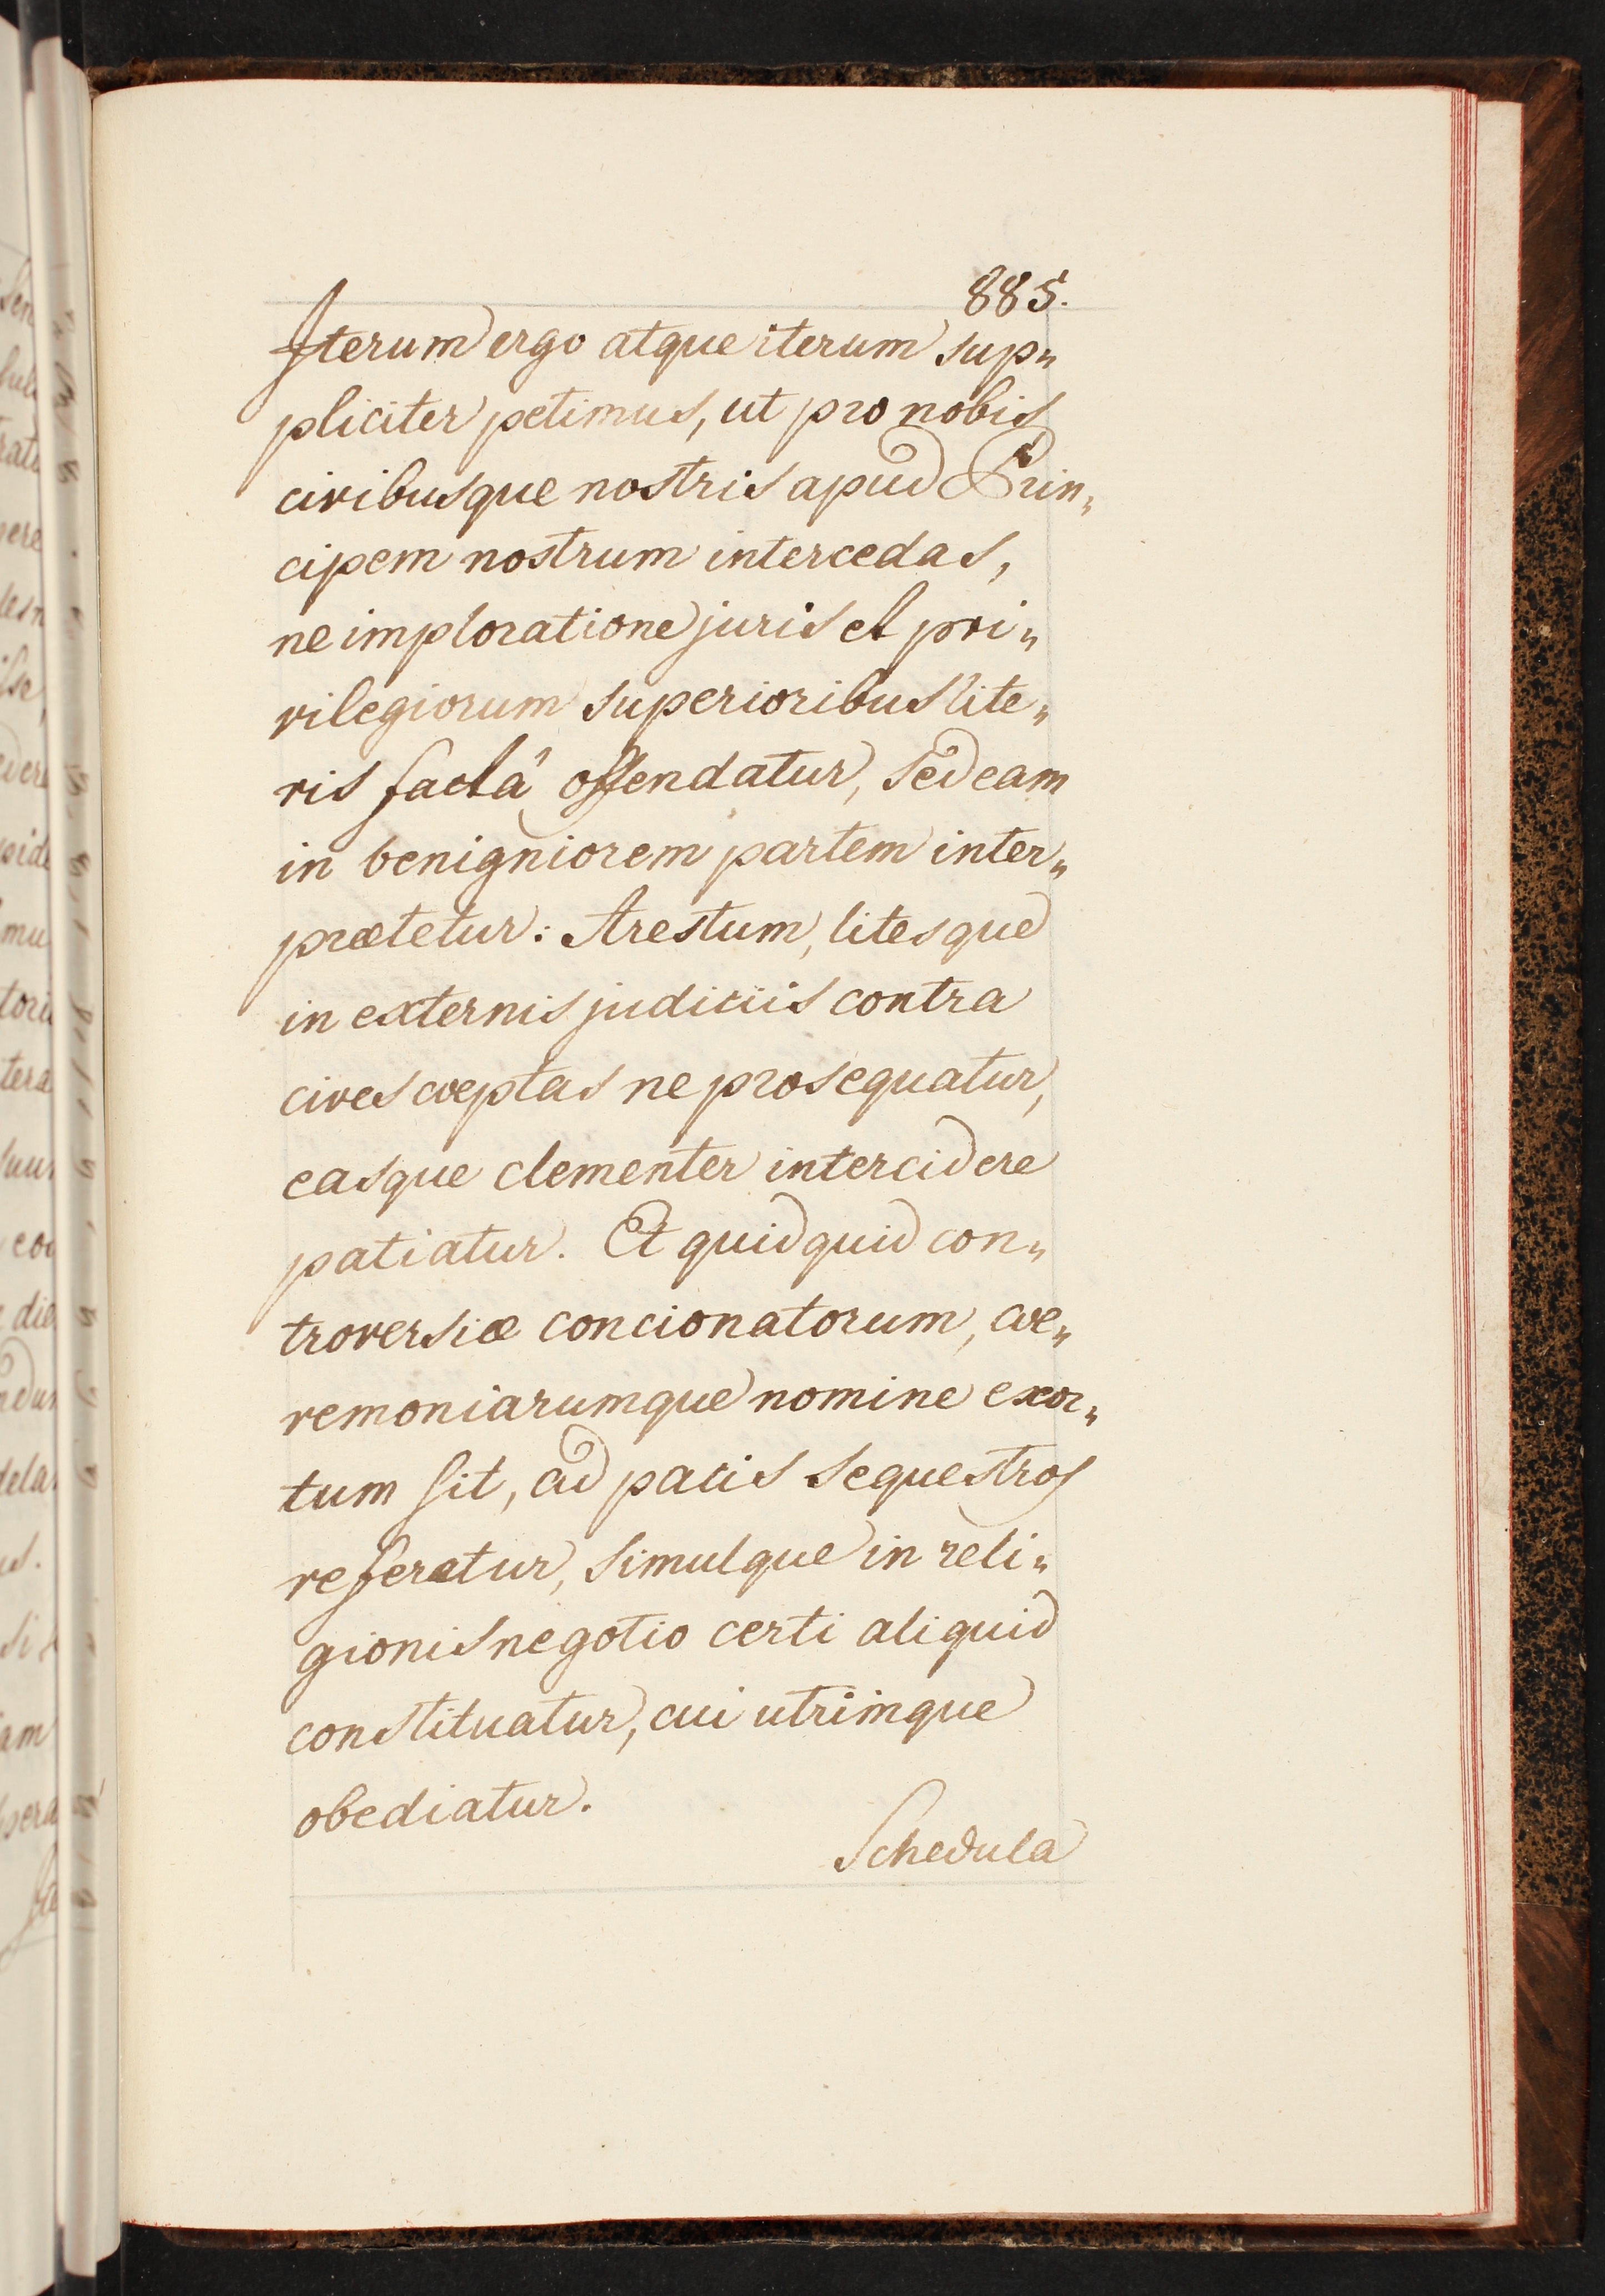 885.
Iterum ergo atque iterum sup„
pliciter petimus, ut pro nobis
civibusque nostris apud Prin„
cipem nostrum intercedas,
ne imploratione juris et pri„
vilegiorum superioribus lite„
ris factâ offendatur, sed eam
in benigniorem partem inter„
prætetur: Arestum, litesque
in externis judiciis contra
cives cœptas ne prosequatur,
easque clementer intercidere
patiatur. Et quidquid con„
troversiæ concionatorum, cæ„
remoniarumque nomine exor„
tum sit, ad pacis sequestros
referatur, simulque in reli„
gionis negotio certi aliquid
constituatur, cui utrimque
obediatur.
Schedula